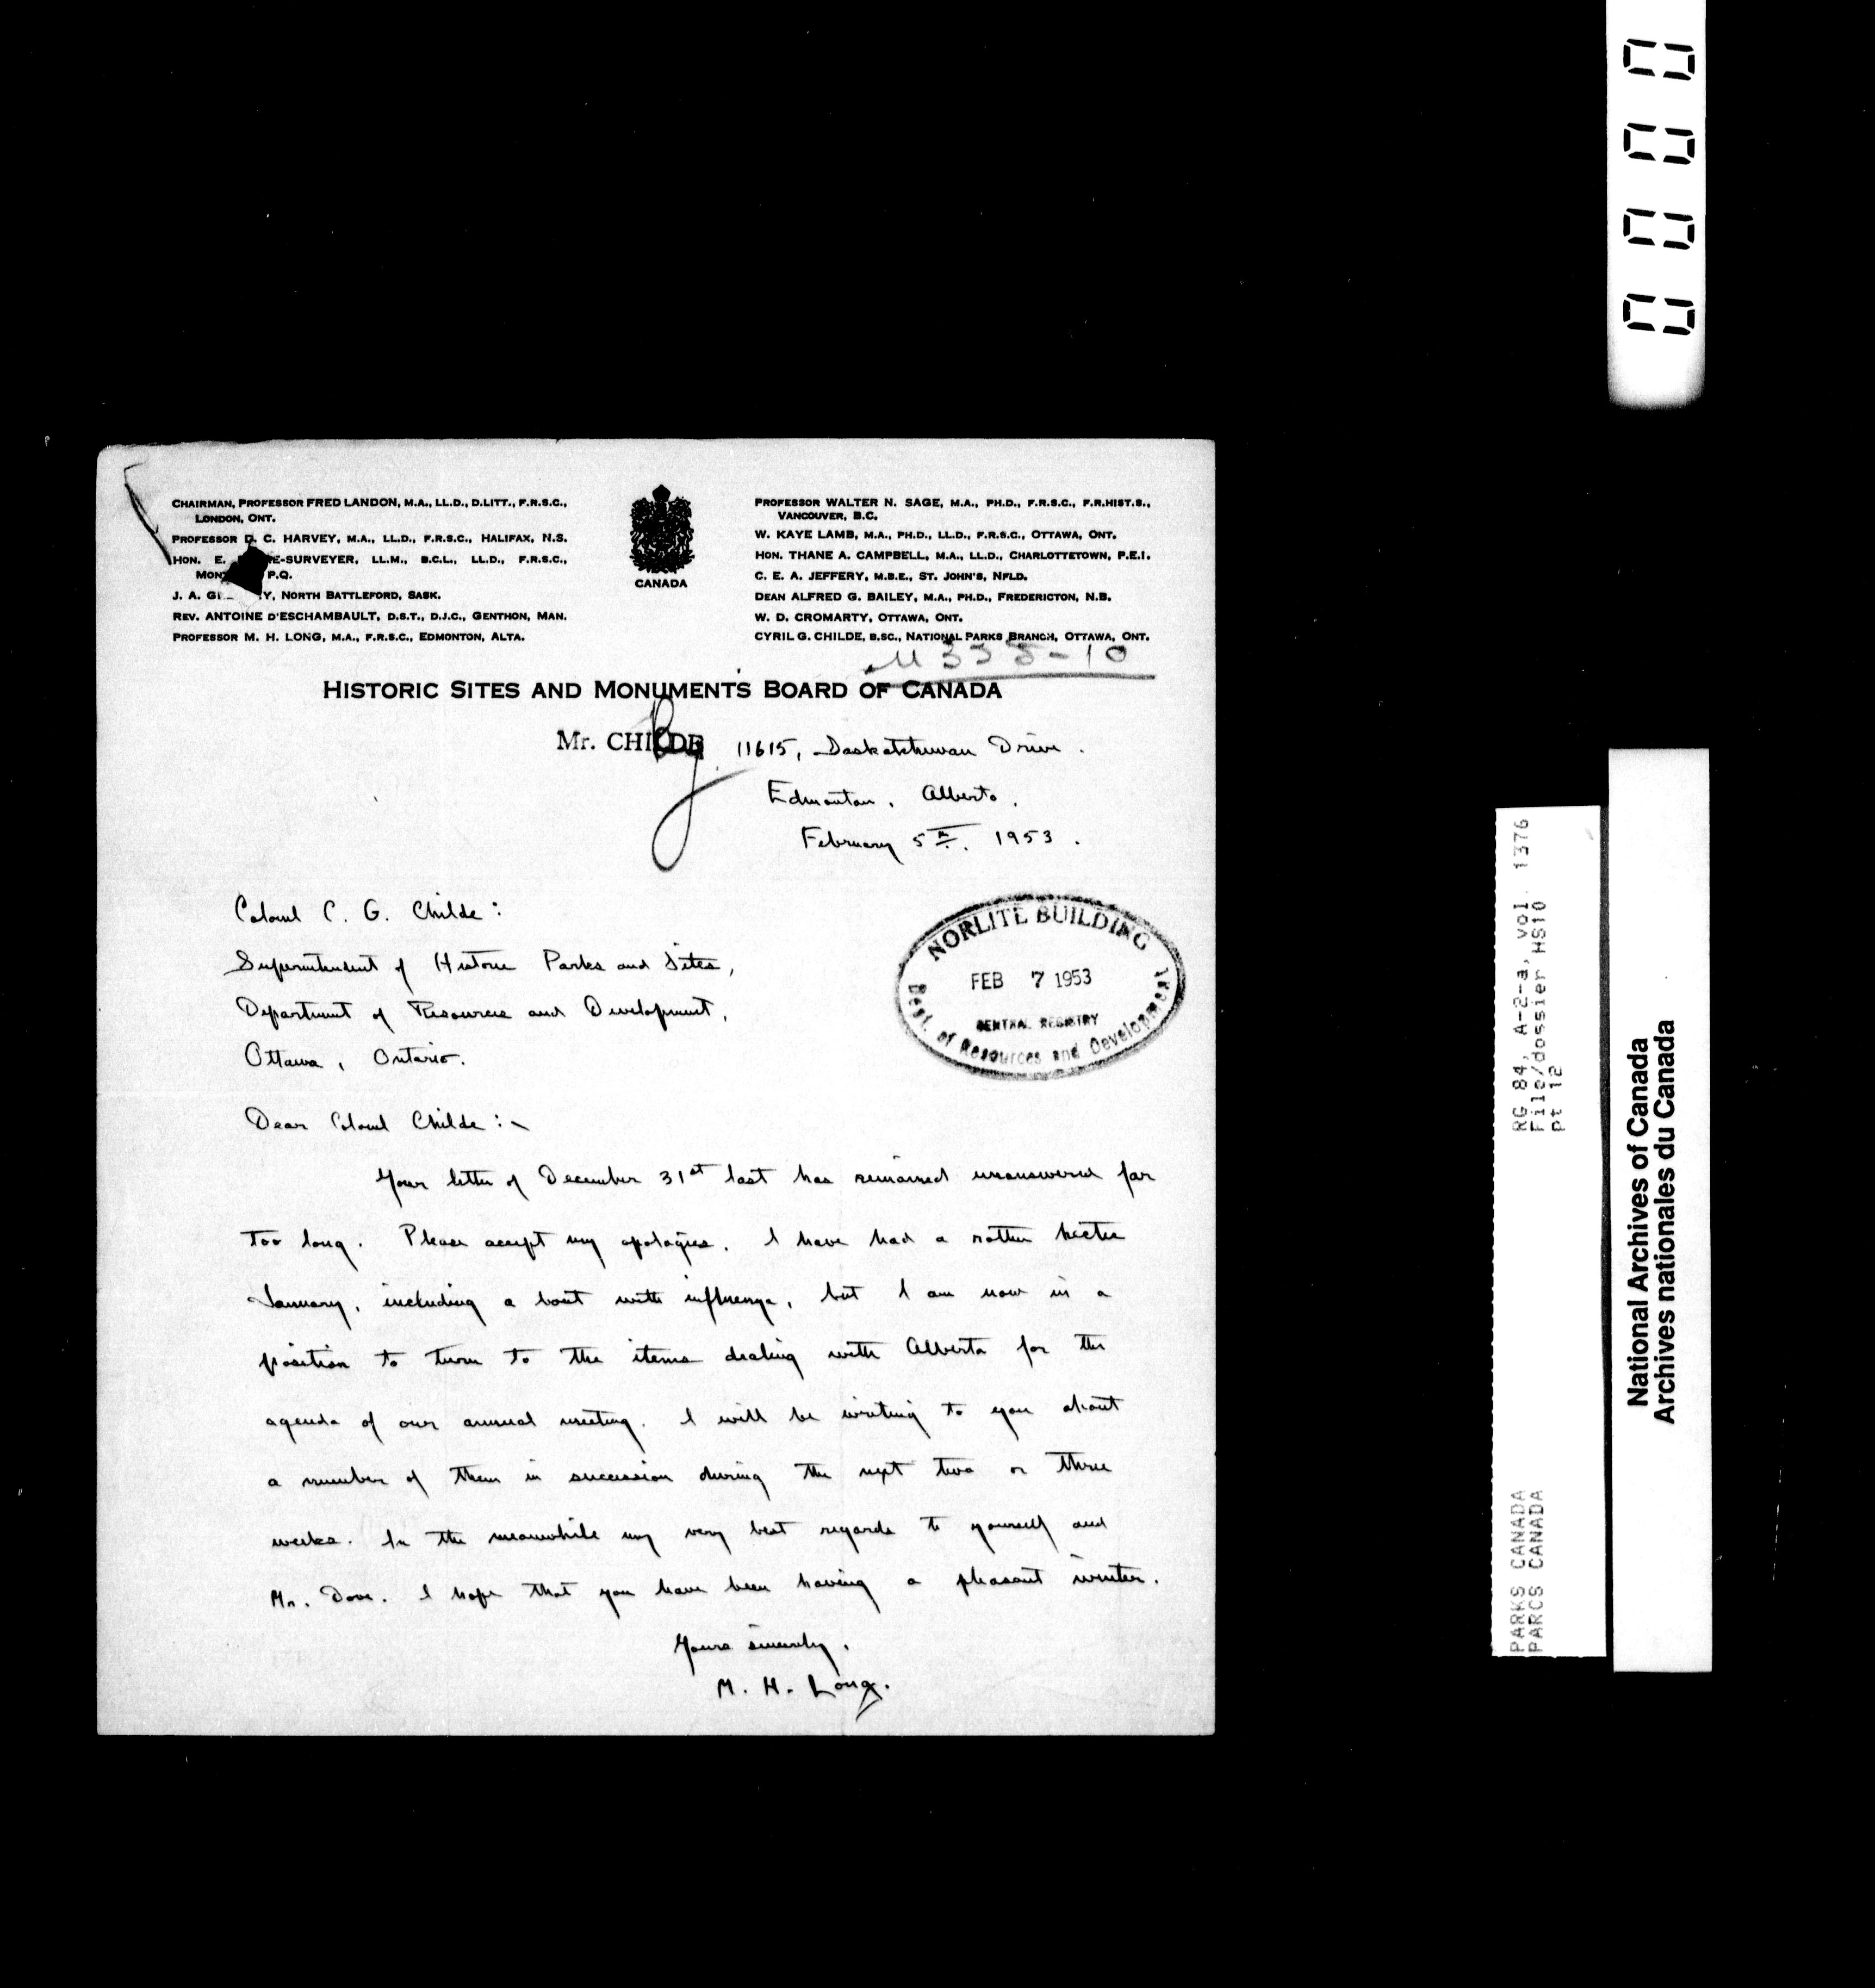 CHAIRMAN, PROFESSOR FRED LANDON, M.A., LL.D., D.LITT., F.R.S.C.,
LONDON, ONT.
PROFESSOR D. C. HARVEY, M.A., LL.D., F.R.S.C., HALIFAX, N.S.
HON. E. E-SURVEYER, LL.M., B.C.L., LL.D., F.R.S.C.,
P.Q.
J. A. NORTH BATTLEFORD, SASK.
REV. ANTOINE D'ESCHAMBAULT, D.S.T., D.J.C., GENTHON, MAN.
PROFESSOR M. H. LONG, M.A., F.R.S.C., EDMONTON, ALTA.
CANADA
PROFESSOR WALTER N. SAGE, M.A., PH.D., F.R.S.C., F.R.HIST.S.,
VANCOUVER, B.C.
W. KAYE LAMB, M.A., PH.D., LL.D., F.R.S.C., OTTAWA, ONT.
HON. THANE A. CAMPBELL, M.A., LL.D., CHARLOTTETOWN, P.E.I.
C. E. A. JEFFERY, M.B.E., ST. JOHN'S, NFLD.
DEAN ALFRED G. BAILEY, M.A., PH.D., FREDERICTON, N.B.
W. D. CROMARTY, OTTAWA, ONT.
CYRIL G. CHILDE, B.SC., NATIONAL PARKS BRANCH, OTTAWA, ONT.
HISTORIC SITES AND MONUMENTS BOARD OF CANADA
Mr. CHILDE
11615, Saskatchewan Drive.
Edmonton, Alberta,
February 5th. 1953.
Colonel C. G. Childe:
Superintendent of Historic Parks and Sites,
Department of Resources and Development,
Ottawa, Ontario.
NORLITE BUILDING
FEB 7 1953
CENTRAL REGISTRY
Dept. of Resources and Development
Dear Colonel Childe:-
Your letter of December 31st last has remained unanswered far
too long. Please accept my apologies. I have had a rather hectic
January, including a bout with influenza, but I am now in a
position to turn to the items dealing with Alberta for the
agenda of our annual meeting. I will be writing to you about
a number of them in succession during the next two or three
weeks. In the meanwhile my very best regards to yourself and
Mr. Dove. I hope that you have been having a pleasant winter.
Yours sincerely,
M. H. Long.
0000
RG 84, A-2-a, vol. 1376
File/dossier HS10
pt 12
PARKS CANADA
PARCS CANADA
National Archives of Canada
Archives nationales du Canada